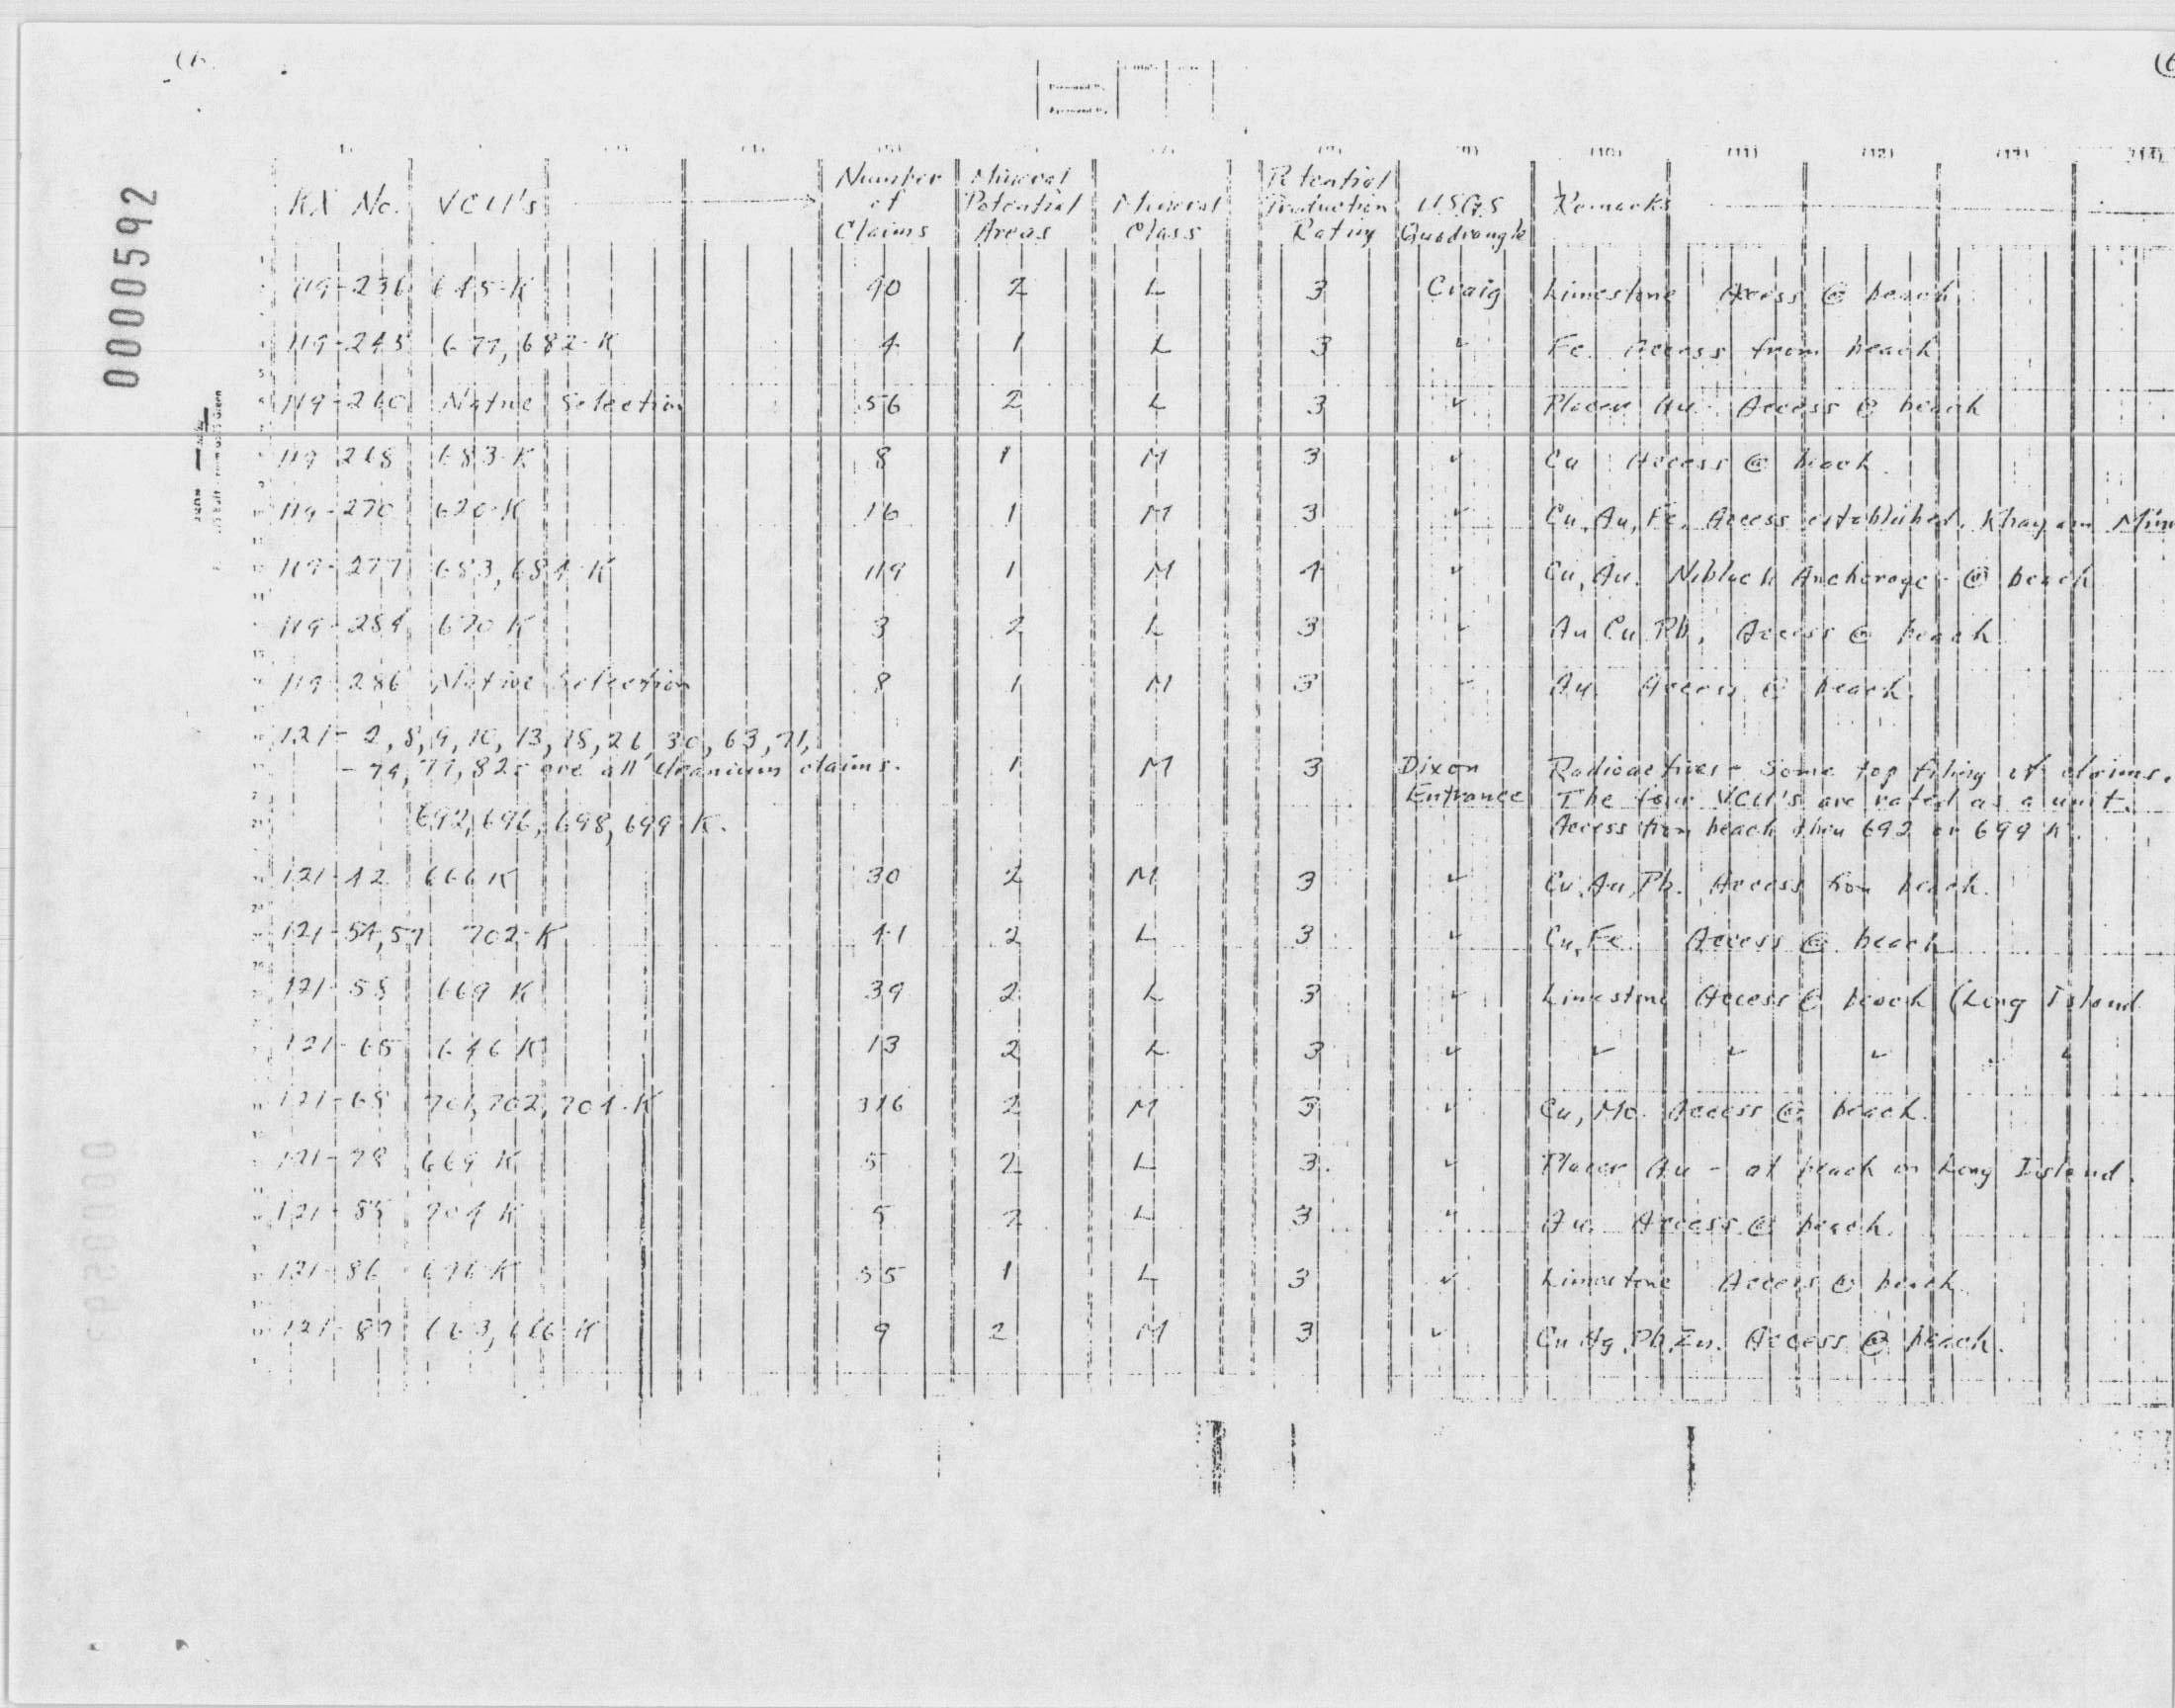 0000592
KX No. VCU's Number of Claims Mineral Potential Areas Mineral Class Potential Production Rating USGS Quadrangle Remarks
119-236 645-K 40 2 L 3 Craig Limestone Access @ beach
119-245 677, 682-K 4 1 L 3 ✓ Fe. Access from beach
119-260 Native Selection 56 2 L 3 ✓ Placer Au. Access @ beach
119-268 683-K 8 1 M 3 ✓ Cu Access @ beach.
119-270 620-K 16 1 M 3 ✓ Cu, Au, Fe. Access established. Khayam Mine
119-277 683, 684-K 119 1 M 4 ✓ Cu, Au. Niblack Anchorage - @ beach
119-284 670 K 3 2 L 3 ✓ Au Cu Pb. Access @ beach
119-286 Native Selection 8 1 M 3 ✓ Au. Access @ beach.
121- 2, 8, 9, 10, 13, 15, 26, 30, 63, 71,
- 74, 77, 82 - are all Uranium claims. 1 M 3 Dixon Entrance Radioactives - Some top filing of claims.
The four VCU's are rated as a unit.
692, 696, 698, 699-K. Access from beach thru 692 or 699 K.
121-42 666 K 30 2 M 3 ✓ Cu, Au, Pb. Access from beach.
121-54, 57 702-K 41 2 L 3 ✓ Cu, Fe. Access @ beach
121-58 669 K 39 2 L 3 ✓ Limestone Access @ beach (Long Island
121-65 646 K 13 2 L 3 ✓ ✓ ✓ ✓ ✓ ✓
121-68 701, 702, 704-K 316 2 M 3 ✓ Cu, Mo. Access @ beach.
121-78 669 K 5 2 L 3. ✓ Placer Au - at beach on Long Island.
121-85 704 K 5 2 L 3 " Au. Access @ beach.
121-86 696-K 55 1 L 3 ✓ Limestone Access @ beach.
121-87 663, 666-K 9 2 M 3 ✓ Cu Ag, Pb, Zn. Access @ beach.